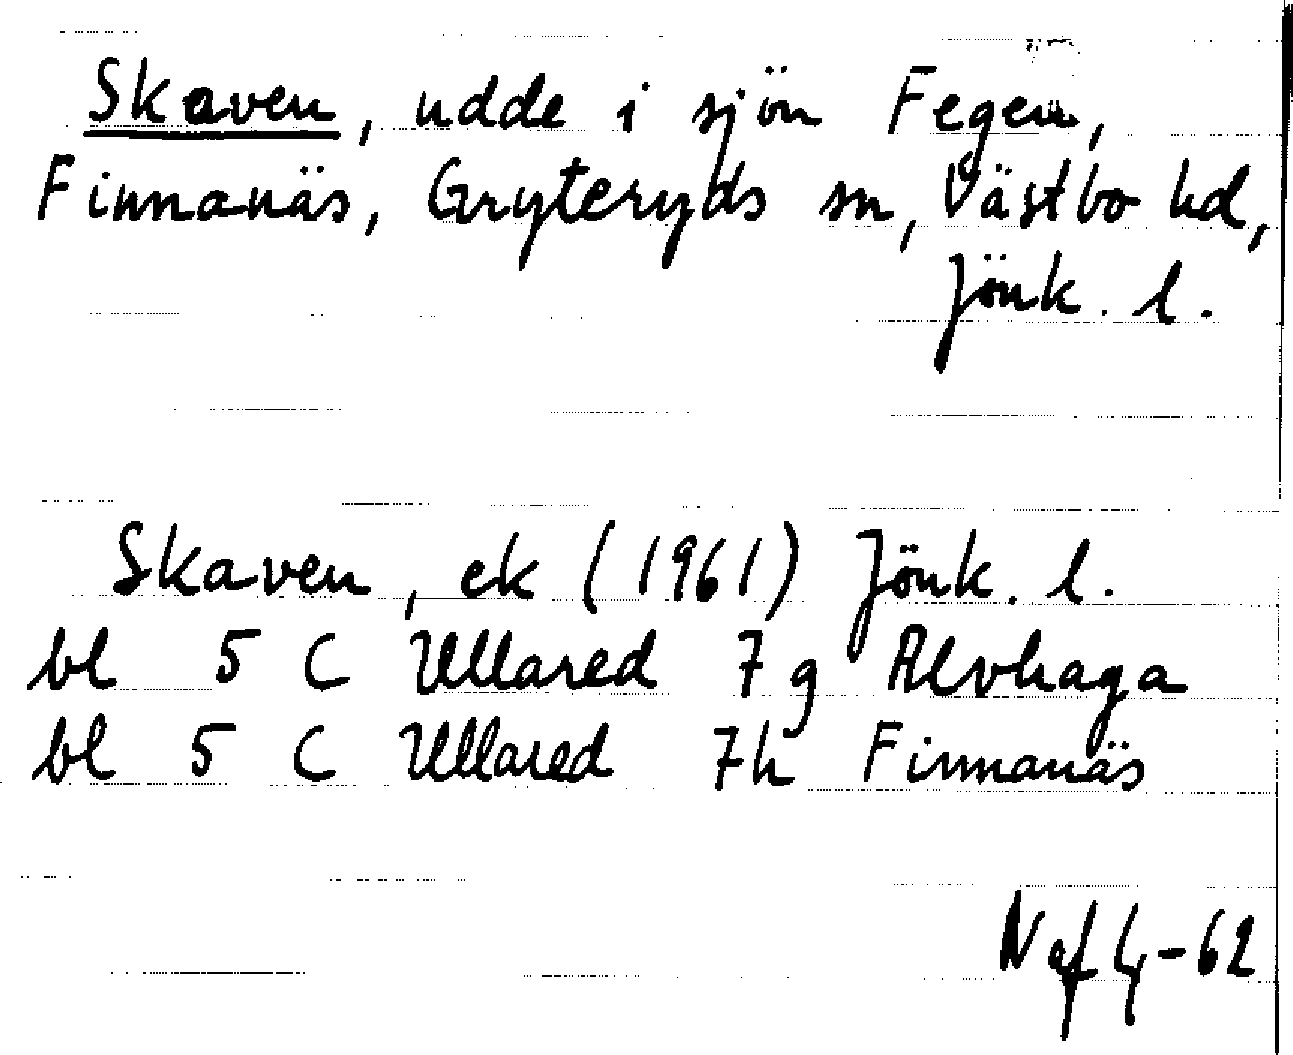 Skaven, udde i sjön Fegen,
Finnanäs, Gryteryds sn, Västbo hd,
Jönk. l.
Skaven, ek (1961) Jönk. l.
bl 5 C Ullared 7g Älvhaga
bl 5 C Ullared 7h Finnanäs
-62